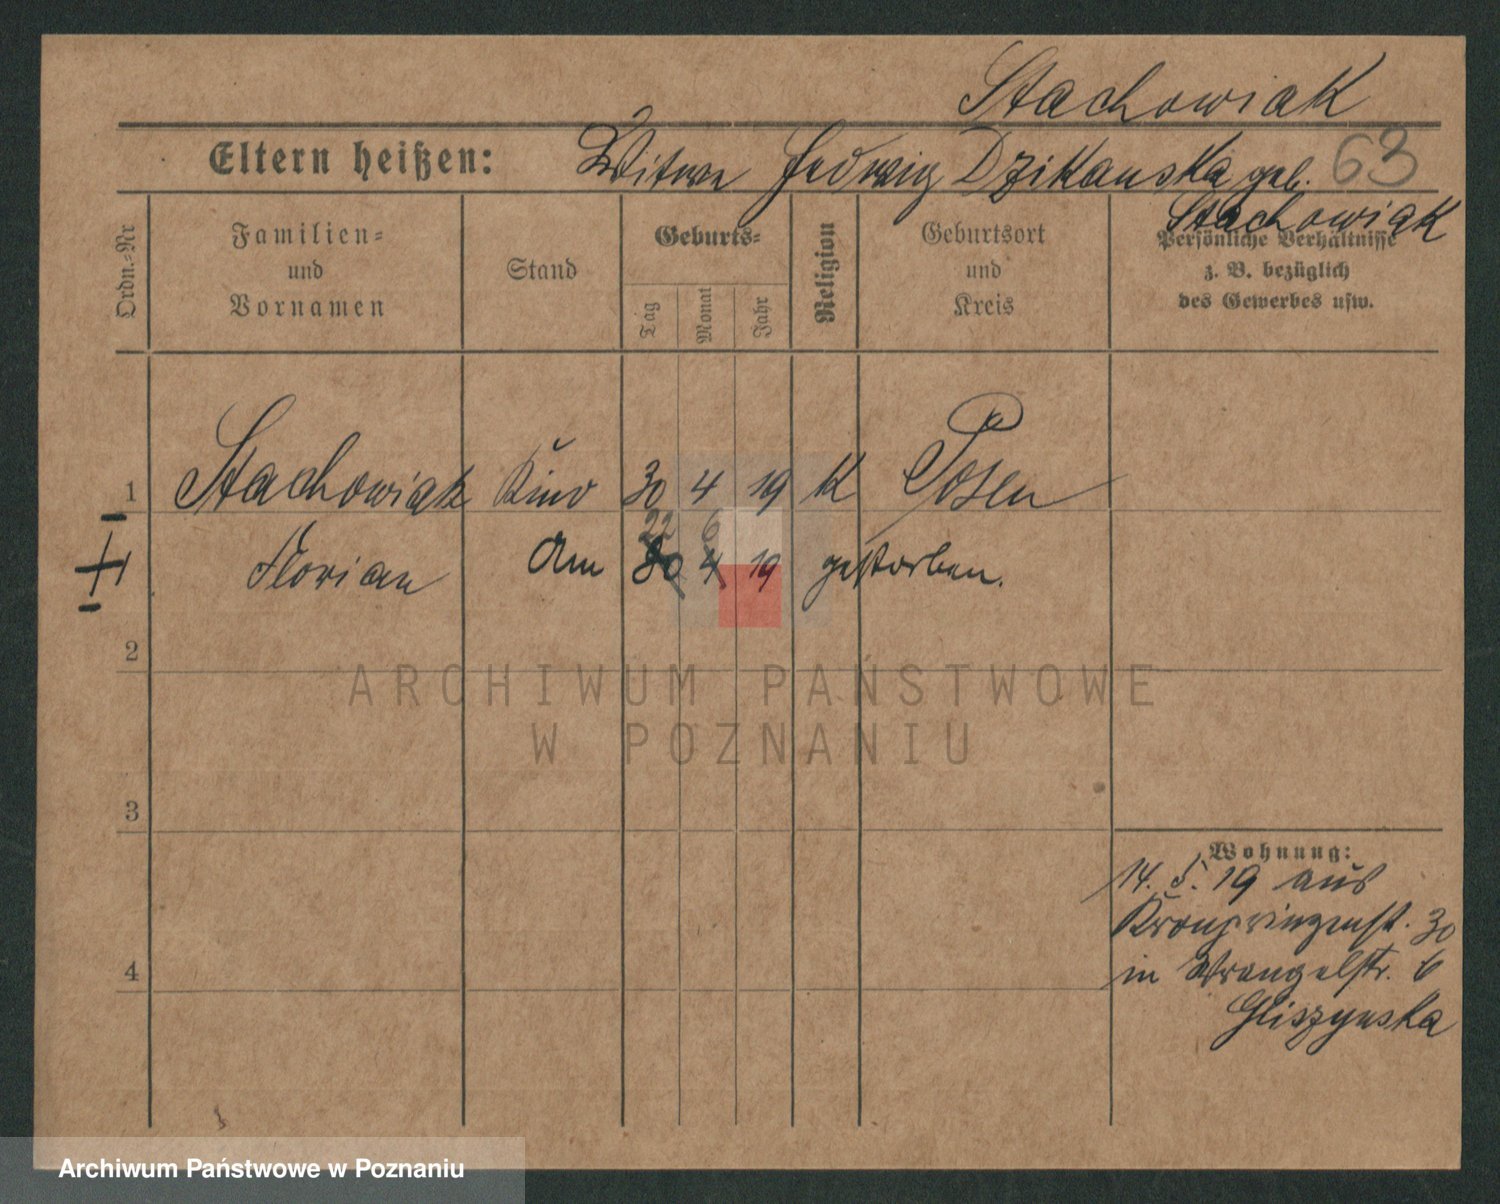 Stachowiak
Eltern heißen: Witwe Hedwig Dzikanska geb. 63
Stachowiak
Ordn.-Nr
Familien-
und
Vornamen
Stand
Geburts-
Tag
Monat
Jahr
Religion
Geburtsort
und
Kreis
Persönliche Verhältnisse
z. B. bezüglich
des Gewerbes usw.
1 Stachowiak Kind 30 4 19 K Posen
22 6
Florian Am 30 4 19 gestorben.
2
3
4
Wohnung:
14. 5. 19 aus
Kronprinzenst. 30
in Wrangelstr. 6
Gliszynska
ARCHIWUM PAŃSTWOWE
W POZNANIU
Archiwum Państwowe w Poznaniu